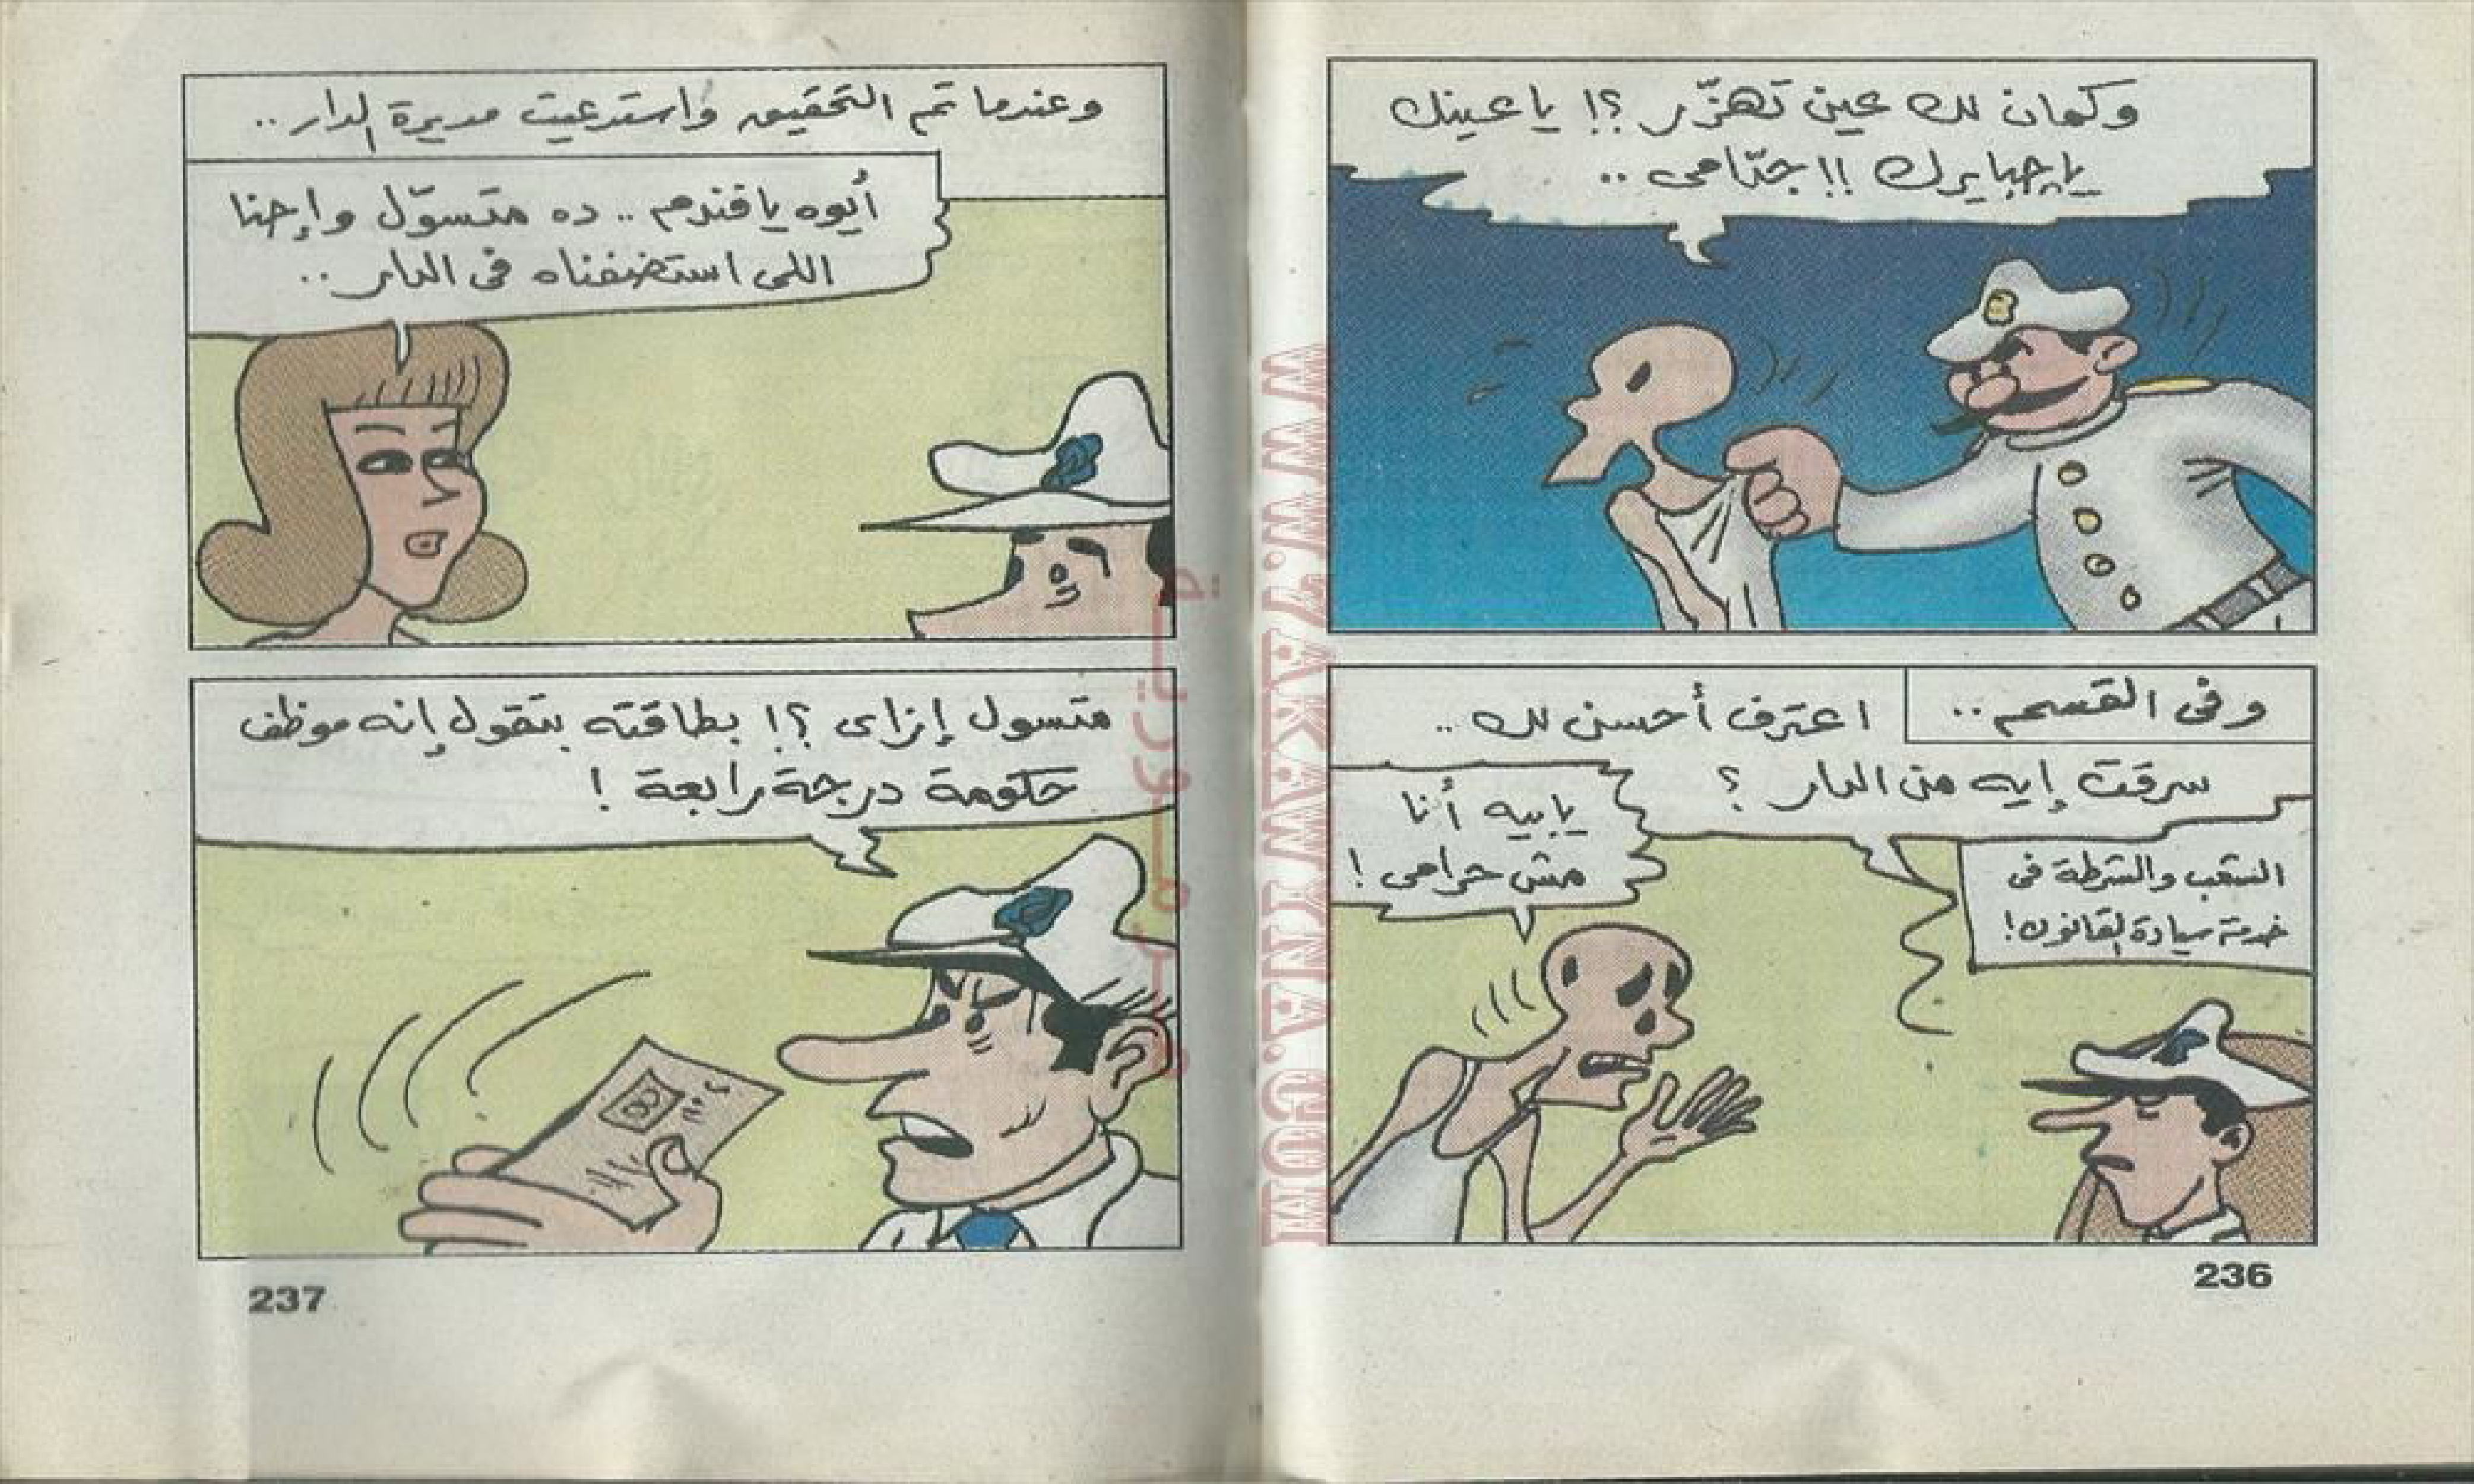 وكمان لك عين تهزّر ؟! يا عينك
يا جبايرك !! جدّامى ..
وفى القسم ..
اعترف أحسن لك ..
سرقت إيه من الدار ؟
يا بيه أنا
مش حرامى !
الشعب والشرطة فى
خدمة سيادة القانون !
236
وعندما تم التحقيق واستدعيت مديرة الدار ..
أيوه يا فندم .. ده متسوّل وإحنا
اللى استضفناه فى الدار ..
متسول إزاى ؟! بطاقته بتقول إنه موظف
حكومة درجة رابعة !
237
WWW.ARABCOMICS